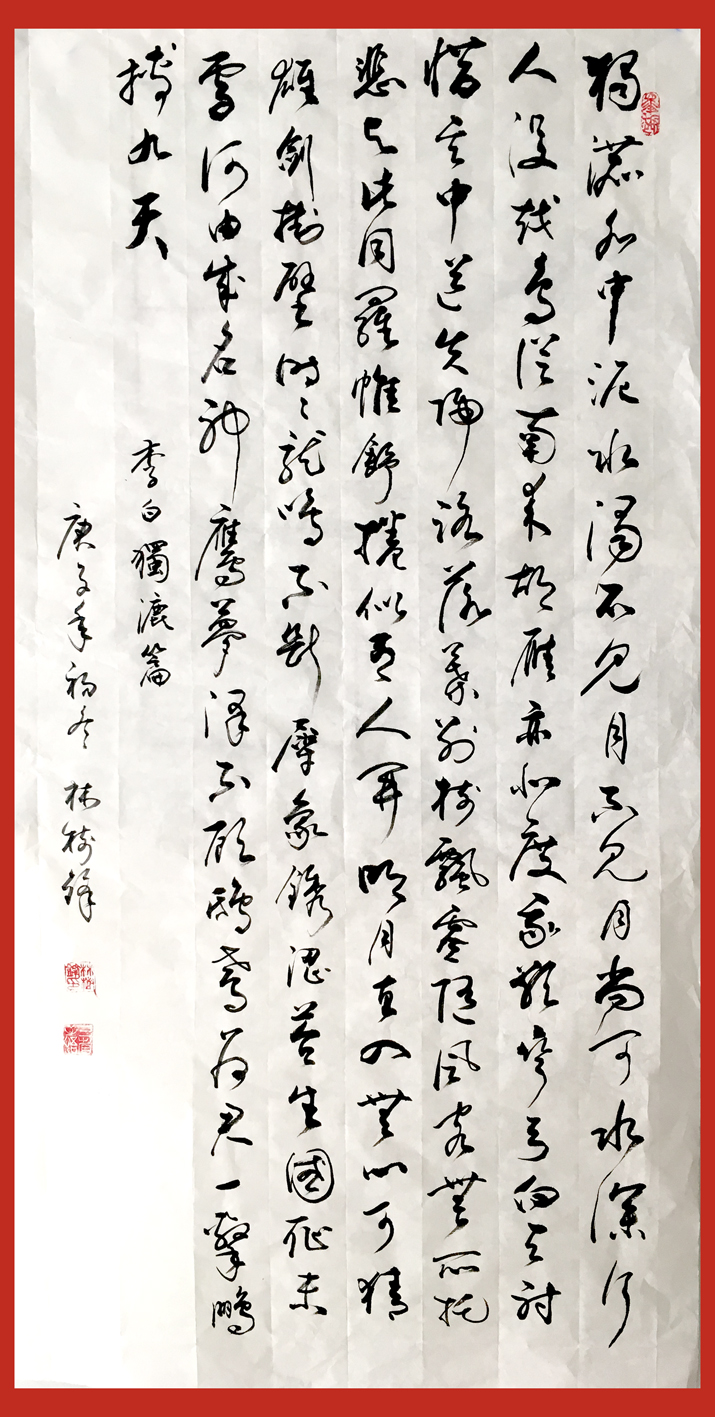 獨漉水中泥水濁不見月不見月尚可水深行
人沒越鳥從南來胡雁亦北度我欲彎弓向天射
惜其中道失歸路落葉別樹飄零隨風客無所托
悲與此同羅帷舒捲似有人開明月直入無心可猜
雄劍掛壁時〻龍鳴不斷犀象銹澀苔生國恥未
雪何由成名神鷹夢澤不顧鴟鳶為君一擊鵬
搏九天
李白獨漉篇
庚子年初冬 林樹鋒